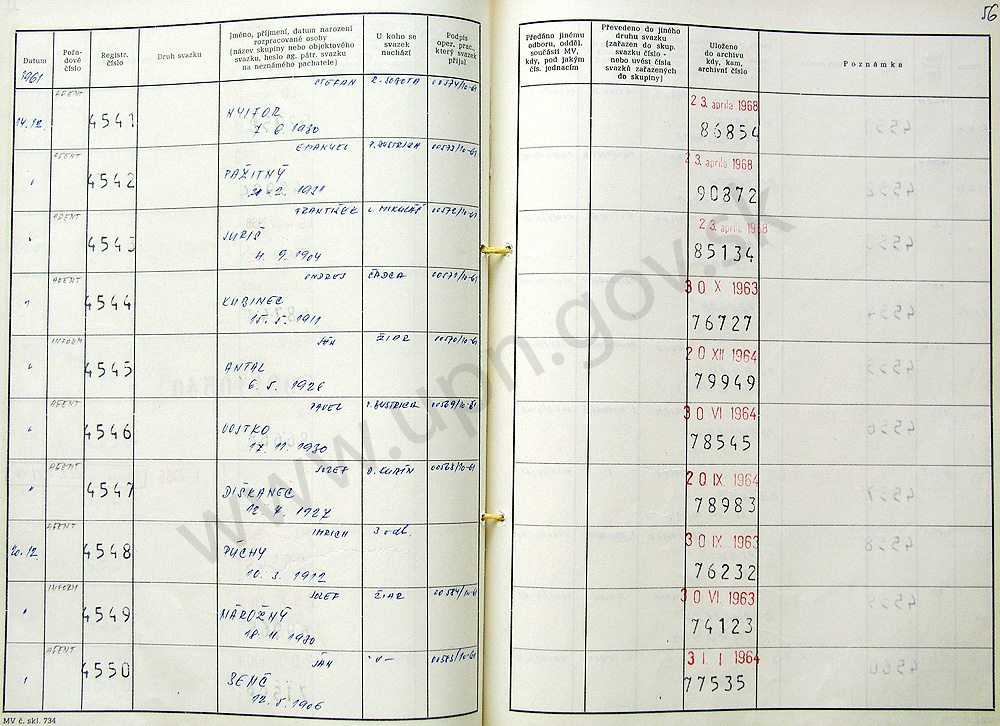 56
Datum
Pořadové číslo
Registr. číslo
Druh svazku
Jméno, příjmení, datum narození rozpracované osoby (název skupiny nebo objektového svazku, heslo ag. pátr. svazku na neznámého pachatele)
U koho se svazek nachází
Podpis oper. prac., který svazek přijal
Předáno jinému odboru, odděl. součásti MV, kdy, pod jakým čís. jednacím
Převedeno do jiného druhu svazku (zařazen do skup. svazku číslo - nebo uvést čísla svazků zařazených do skupiny)
Uloženo do archivu kdy, kam, archivní číslo
Poznámka
1961
AGENT ŠTEFAN R. SOBOTA 00574/10-61
14.12. 4541 NYITOR 23. apríla 1968
7. 6. 1930 86854
AGENT EMANUEL 00573/10-61
" 4542 PAŽITNÝ 23. apríla 1968
1921 90872
AGENT FRANTIŠEK L. MIKULÁŠ 00572/10-61
" 4543 JURIŠ 23. apríla 1968
4. 9. 1904 85134
AGENT ONDREJ ČADCA 00571/10-61
" 4544 KUBINEC 30 X 1963
15. 5. 1911 76727
INFORM JÁN ŽIAR 00570/10-61
" 4545 ANTAL 20 XII 1964
6. 5. 1926 79949
AGENT PAVEL 00569/10-61
" 4546 VOJTKO 30 VI 1964
17. 11. 1930 78545
AGENT JOZEF D. KUBÍN 00568/10-61
" 4547 DIŠKANEC 20 IX. 1964
12. 4. 1927 78983
AGENT IMRICH 3 odd.
20.12. 4548 PÚCHY 30 IX 1963
10. 3. 1912 76232
INFORM JOZEF ŽIAR 00584/10-61
" 4549 NÁROŽNÝ 30 VI. 1963
18. 11. 1930 74123
AGENT JÁN -"- 00583/10-61
" 4550 SENČ 31. I 1964
12. 5. 1906 77535
MV č. skl. 734
www.upn.gov.sk